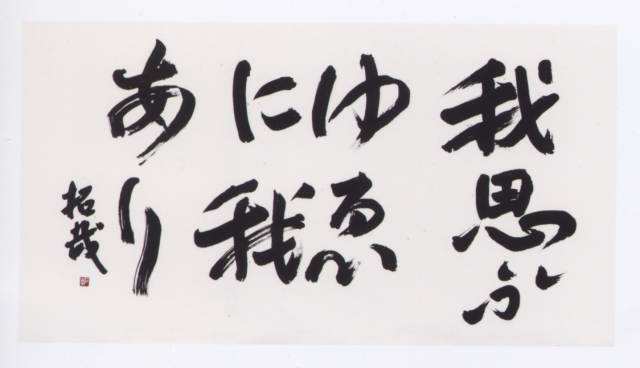 我思ふ
ゆゑ
に我
あり
拓哉